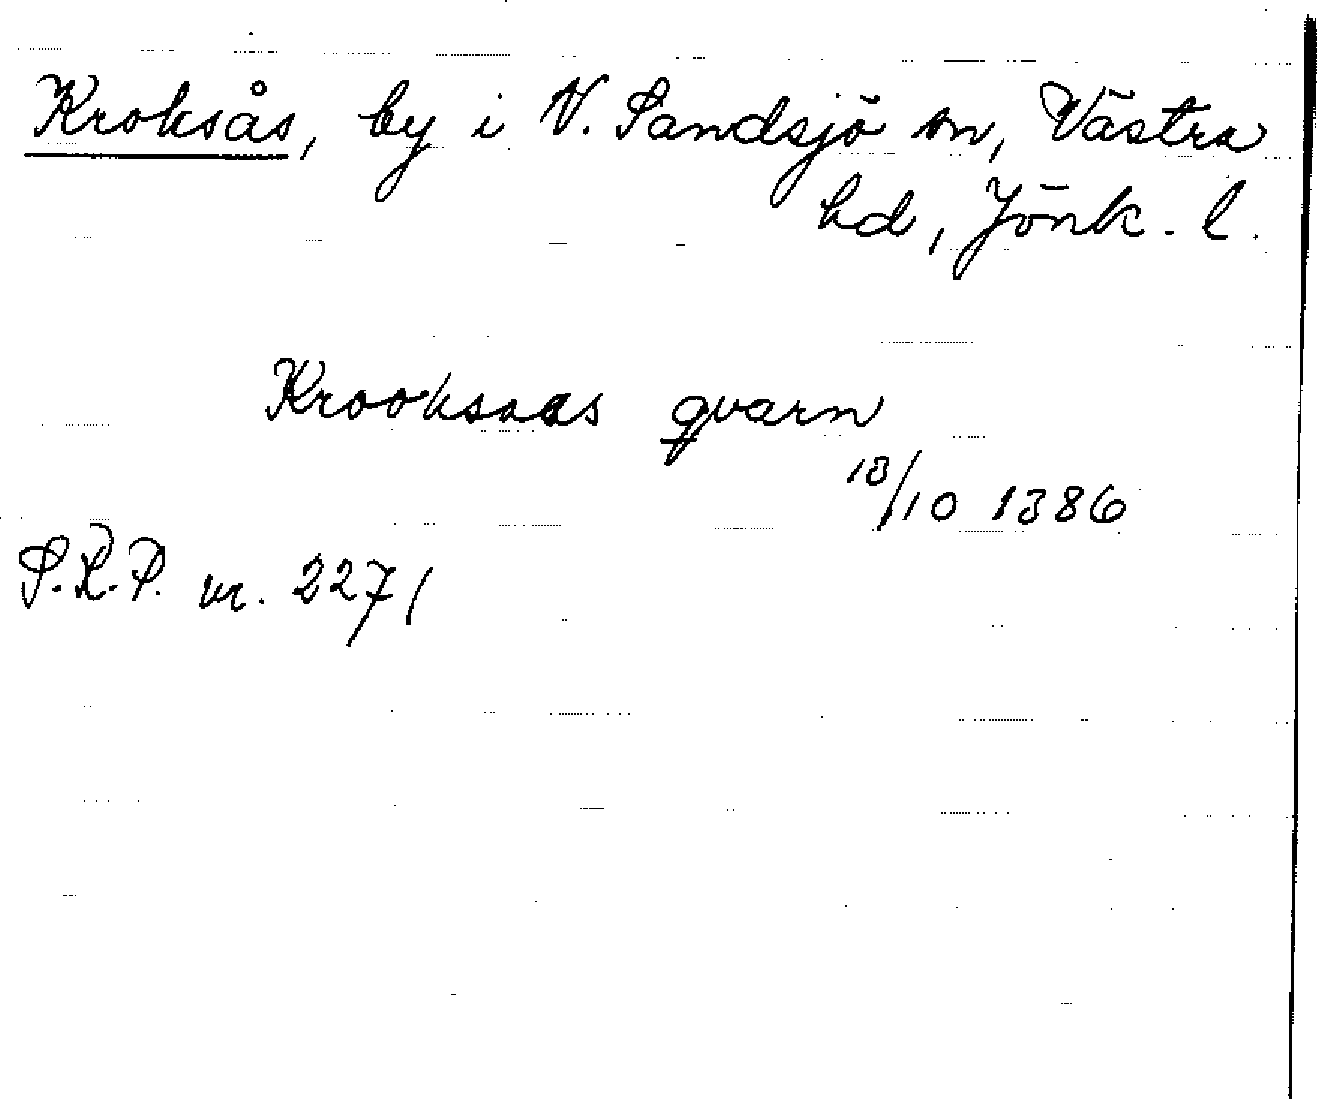 Kroksås, by i N. Sandsjö sn, Västra
hd, Jönk. l.
Krooksaas qvarn
18/10 1386
S.R.P. nr. 2271